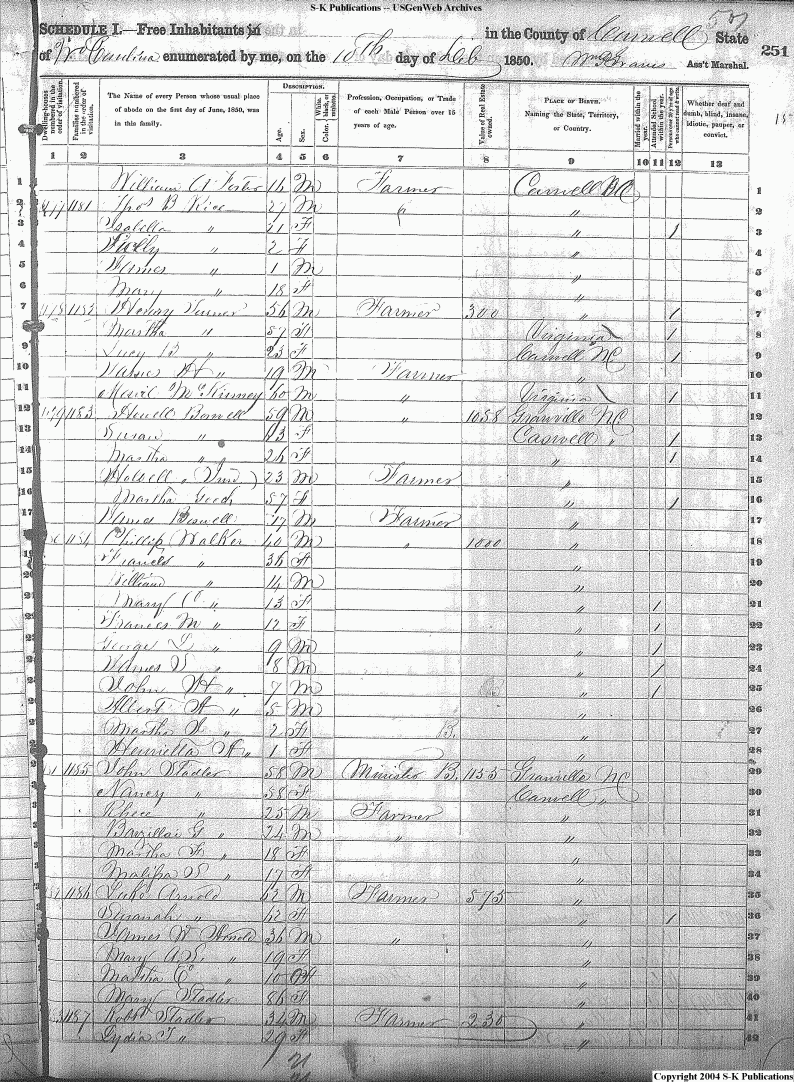 S-K Publications -- USGenWeb Archives
SCHEDULE I.—Free Inhabitants in in the County of Caswell State
of No Carolina enumerated by me, on the 10th day of Oct 1850. Ass't Marshal.
251
Dwelling-houses numbered in the order of visitation.
Families numbered in the order of visitation.
The Name of every Person whose usual place of abode on the first day of June, 1850, was in this family.
DESCRIPTION.
Age.
Sex.
Color, White, black, or mulatto.
Profession, Occupation, or Trade of each Male Person over 15 years of age.
Value of Real Estate owned.
PLACE OF BIRTH.
Naming the State, Territory, or Country.
Married within the year.
Attended School within the year.
Persons over 20 y'rs of age who cannot read & write.
Whether deaf and dumb, blind, insane, idiotic, pauper, or convict.
1 2 3 4 5 6 7 9 10 11 12 13
1 William A 16 M Farmer Caswell NC 1
2 1181 Thos B Rice 27 M " 2
3 Isabella " 21 F " 1 3
4 " 2 F " 4
5 James " 1 M " 5
6 Mary " 18 F " 6
7 1182 Henry Turner 56 M Farmer 300 " 1 7
8 Martha " 57 F Virginia 1 8
9 Lucy B " 23 F Caswell NC 1 9
10 James H " 19 M Farmer " 10
11 McKinney 60 M " Virginia 1 11
12 1183 Howell Boswell 59 M " 1058 Granville NC 12
13 Susan " 43 F Caswell " 1 13
14 Martha " 26 F " 1 14
15 Howell " 23 M Farmer " 15
16 Martha 57 F " 1 16
17 James Boswell 17 M Farmer " 17
18 1184 Phillip Walker 40 M " 1000 " 18
19 Frances " 36 F " 19
20 William " 14 M " 20
21 Mary C " 13 F " 1 21
22 Frances M " 12 F " 1 22
23 George L " 9 M " 1 23
24 James S " 8 M " 1 24
25 John H " 7 M " 1 25
26 Albert A " 5 M " 26
27 Martha S " 2 F B. " 27
28 Henrietta A " 1 F " 28
29 1185 John Stadler 58 M Minister B. 1133 Granville NC 29
30 Nancy " 58 F Caswell " 30
31 " 25 M Farmer " 31
32 Barzillai G " 24 M " " 32
33 Martha F " 18 F " 33
34 Malissa S " 17 F " 34
35 1186 Luke Arnold 62 M Farmer 575 " 35
36 Susanah " 62 F " 1 36
37 James W Arnold 36 M " " 37
38 Mary A S " 19 F " 38
39 Martha C " 10 F " 39
40 Mary Stadler 86 F " 40
41 1187 Robt Stadler 34 M Farmer 230 " 41
42 Lydia T " 29 F " 42
Copyright 2004 S-K Publications